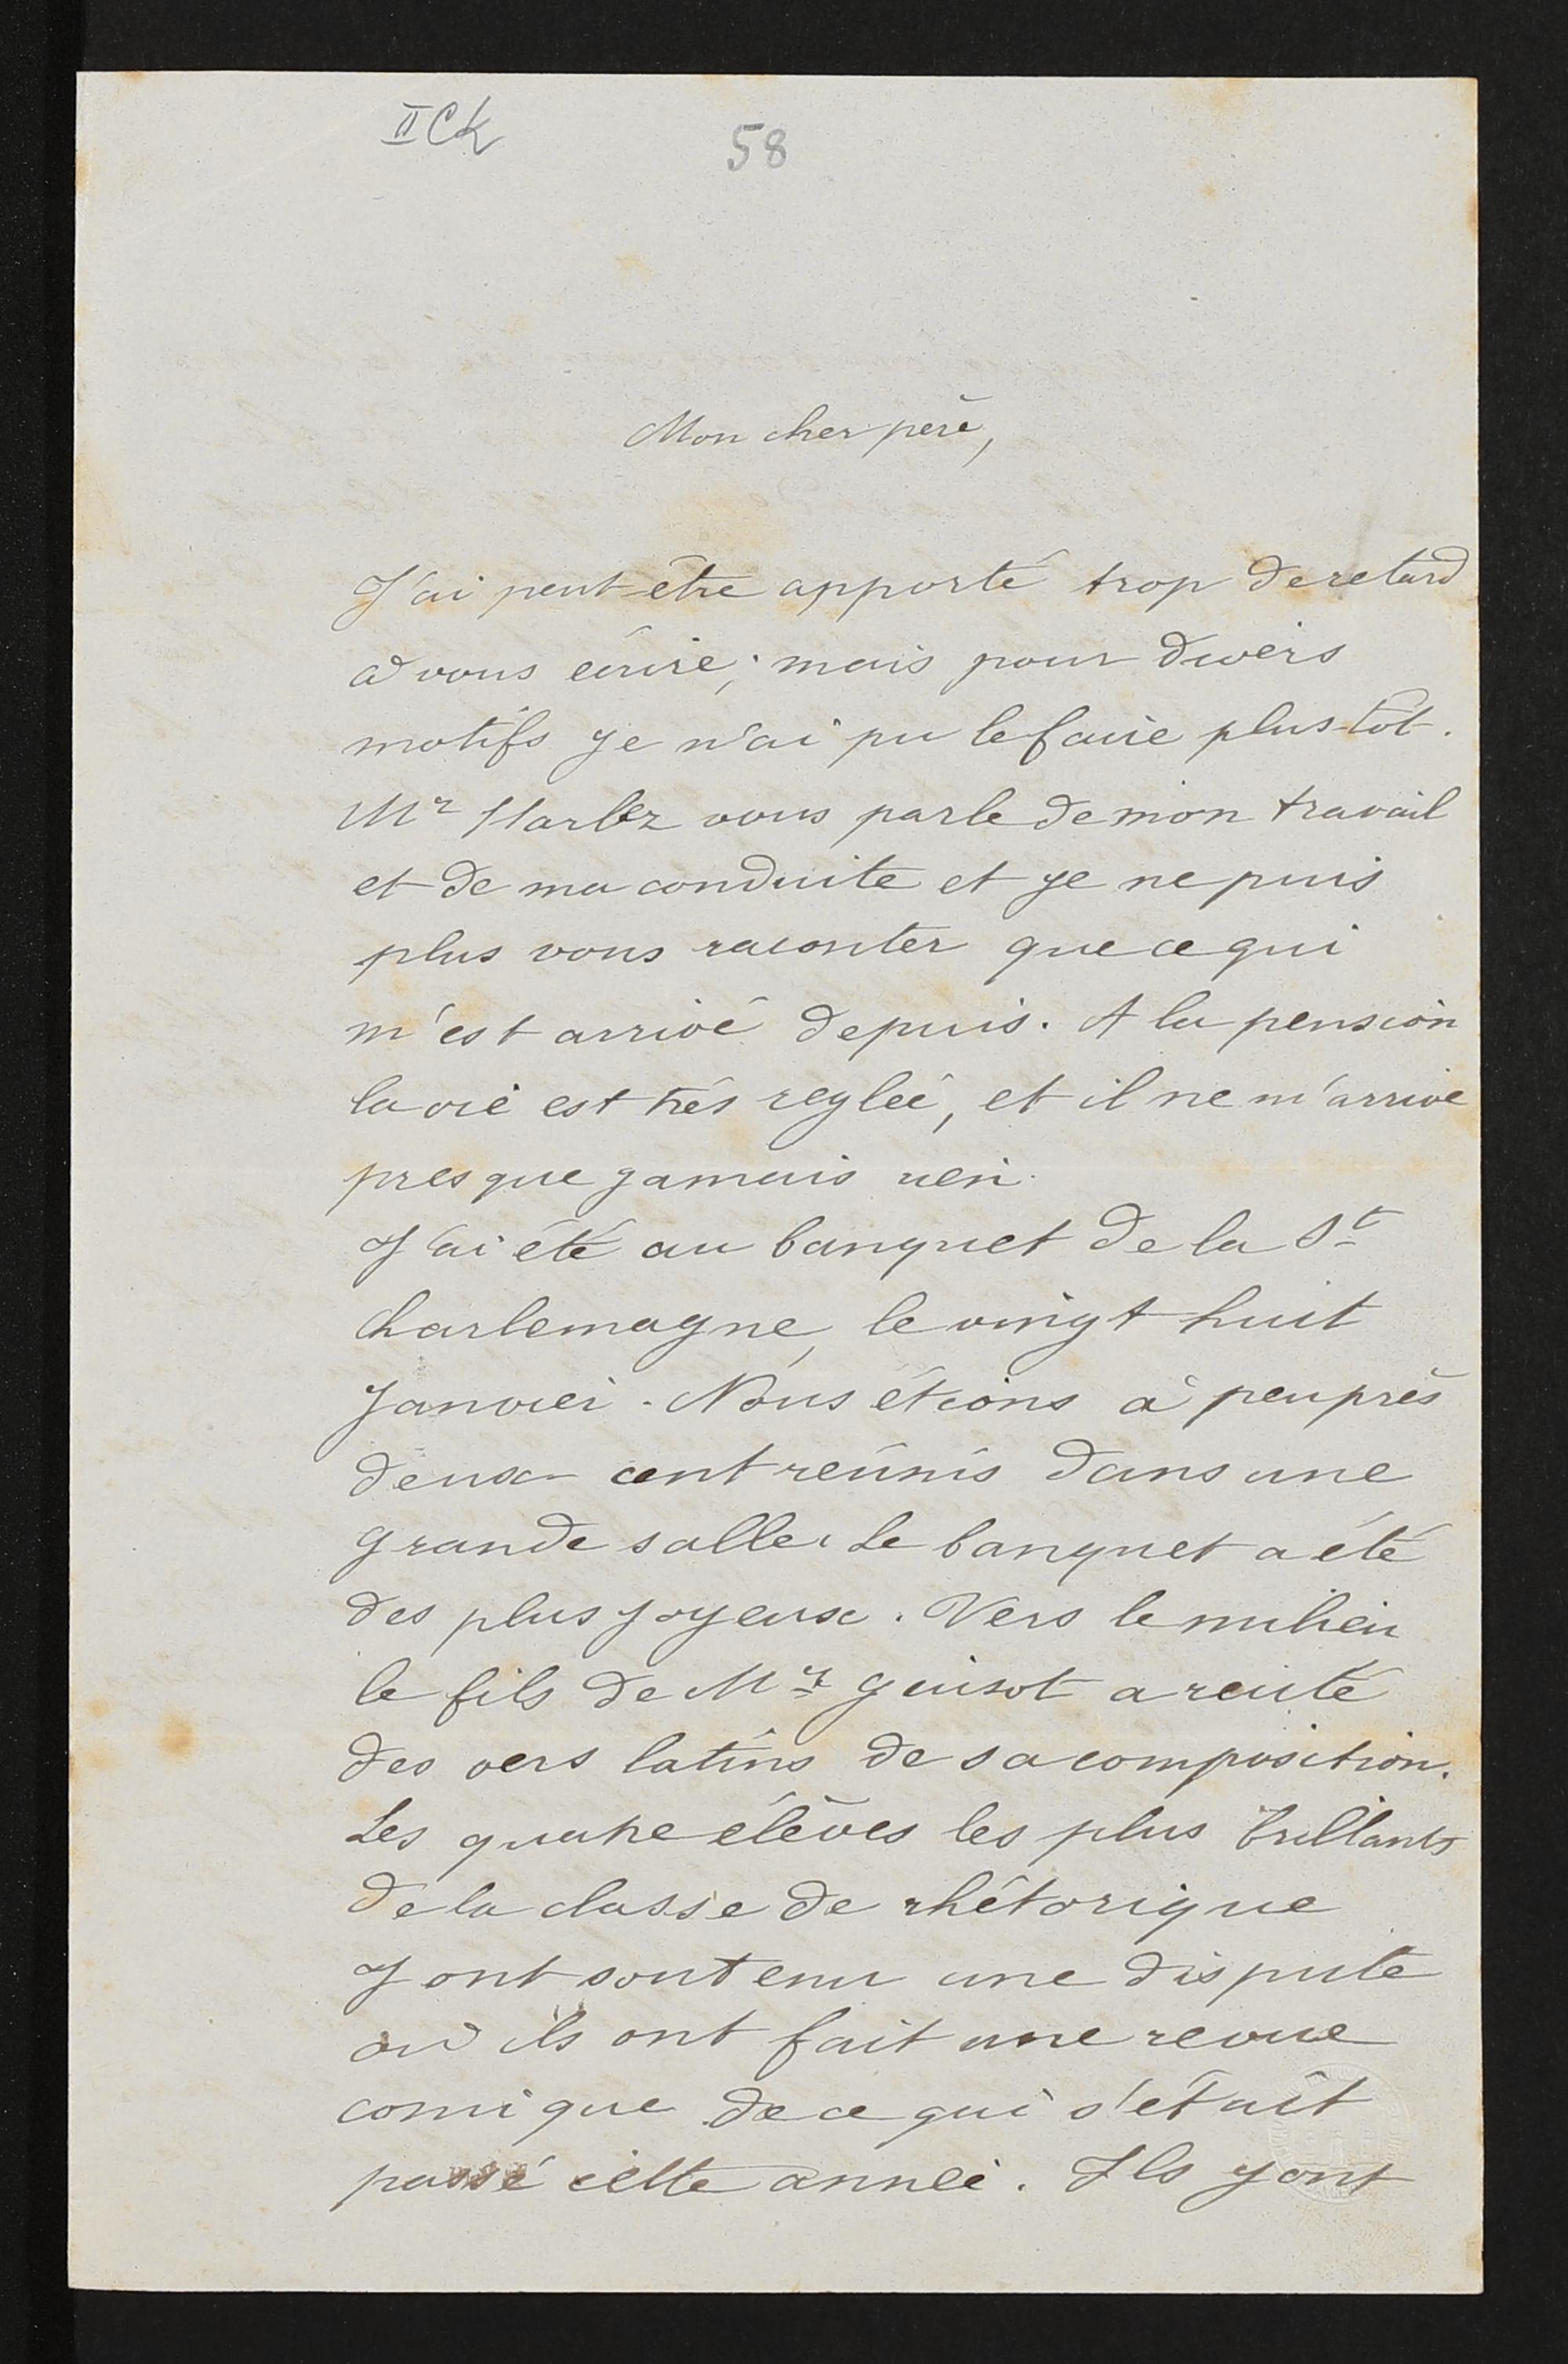 II Ck
58
Mon cher père,
J'ai peut-être apporté trop de retard
à vous écrire; mais pour divers
motifs je n'ai pu le faire plus-tôt.
Mr Harlez vous parle de mon travail
et de ma conduite et je ne puis
plus vous raconter que ce qui
m'est arrivé depuis. A la pension
la vie est très reglée, et il ne m'arrive
presque jamais rien.
J'ai été au banquet de la St
Charlemagne, le vingt huit
Janvier. Nous étions à peu près
deux cent réunis dans une
grande salle. Le banquet a été
des plus joyeux. Vers le milieu
le fils de Mr Guisot a recité
des vers latins de sa composition.
Les quatre élèves les plus brillants
de la classe de rhétorique
y ont soutenu une dispute
où ils ont fait une revue
comique de ce qui s'était
passé cette année. Ils y ont